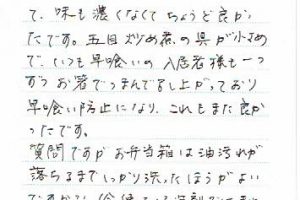 て、味も濃くなくてちょうど良か
たです。五目炒め煮の具が小さめ
で、いつも早喰いの入居者様も一つ
ずつお箸でつまんで召し上がっており
早喰い防止になり、これもまた良か
ったです。
質問ですがお弁当箱は油汚れが
落ちるまでしっかり洗ったほうがよい
ですか?